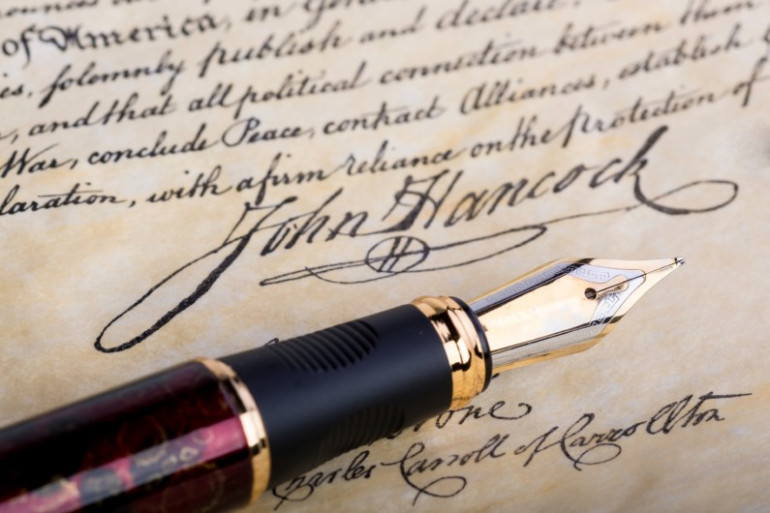 of America, in Gen
es, solemnly publish and declare, T
, and that all political connection between them
War, conclude Peace, contract Alliances, establish
laration, with a firm reliance on the Protection of
John Hancock
one
Charles Carroll of Carrollton